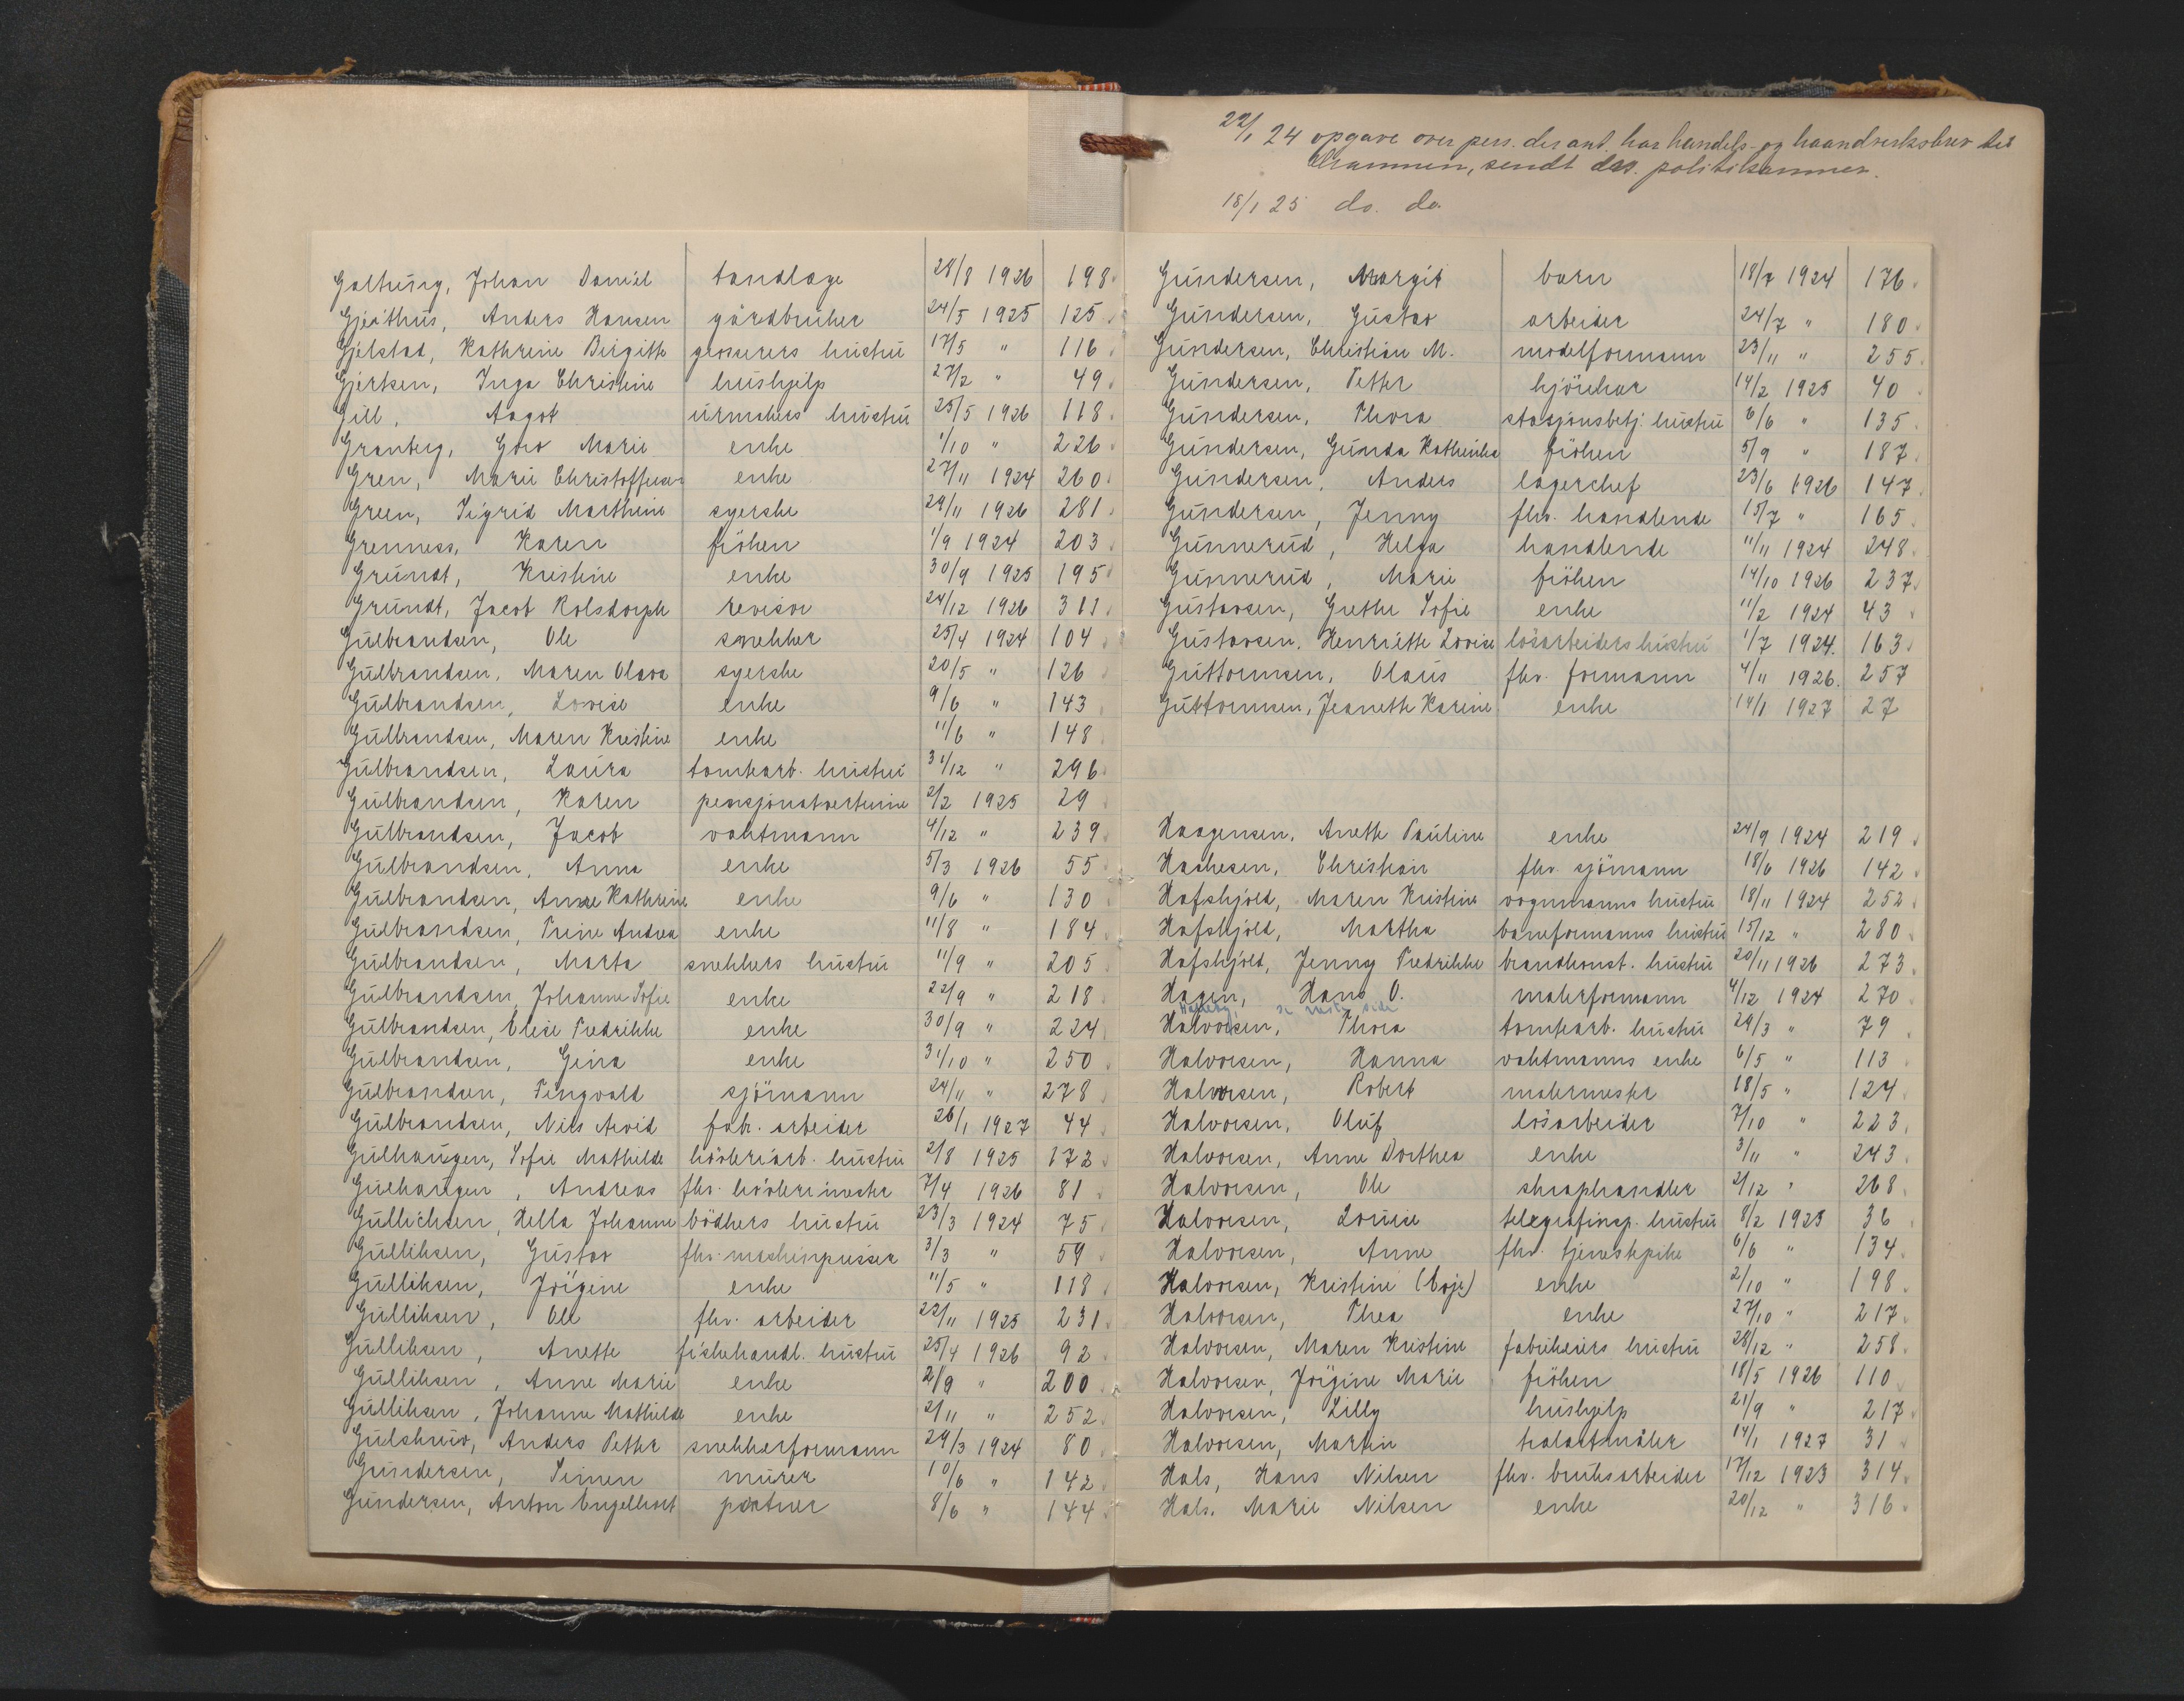 22/1 24 opgave over pers. der ant. har handels- og haandverksbrev til
Drammen, sendt drs. politikammer.
18/1 25 do. do.
Galtung, Johan Daniel tandlæge 28/8 1926 198
Gjerthus, Anders Hansen gårdbruker 24/5 1925 125
Gjelstad, Kathrine Birgitte grosserers hustru 17/5 " 116
Gjertsen, Inga Christine hushjelp 27/2 " 49
Gill, Aagot urmakers hustru 25/5 1926 118
Granberg, Goro Marie enke 1/10 " 226
Gren, Marie Christoffersen enke 27/11 1924 260
Green, Sigrid Marthine syerske 29/11 1926 281
Grenness, Karen fröken 1/9 1924 203
Grundt, Kristine enke 30/9 1925 195
Grundt, Jacob Rolsdorph revisor 24/12 1926 311
Gulbrandsen, Ole snekker 25/4 1924 104
Gulbrandsen, Maren Olava syerske 20/5 " 126
Gulbrandsen, Lovise enke 9/6 " 143
Gulbrandsen, Maren Kristine enke 11/6 " 148
Gulbrandsen, Laura tomtearb. hustru 31/12 " 296
Gulbrandsen, Karen pensjonatvertinne 2/2 1925 29
Gulbrandsen, Jacob vaktmann 4/12 " 239
Gulbrandsen, Anna enke 5/3 1926 55
Gulbrandsen, Anne Kathrine enke 9/6 " 130
Gulbrandsen, Trine Andrea enke 11/8 " 184
Gulbrandsen, Marta snekkers hustru 11/9 " 205
Gulbrandsen, Johanne Sofie enke 22/9 " 218
Gulbrandsen, Elise Fredrikke enke 30/9 " 224
Gulbrandsen, Gina enke 31/10 " 250
Gulbrandsen, Tingvald sjömann 24/11 " 278
Gulbrandsen, Nils Arvid fabr. arbeider 26/1 1927 44
Gulhaugen, Sofie Mathilde hövleriarb. hustru 2/8 1925 172
Gulhaugen, Andreas fhv. hövlerimester 7/4 1926 81
Gullichsen, Hella Johanne bödkers hustru 23/3 1924 75
Gulliksen, Gustav fhv. maskinpusser 3/3 " 59
Gulliksen, Jörgine enke 11/5 " 118
Gulliksen, Ole fhv. arbeider 22/11 1925 231
Gulliksen, Anette fiskehandl. hustru 25/4 1926 92
Gulliksen, Anne Marie enke 2/9 " 200
Gulliksen, Johanne Mathilde enke 2/11 " 252
Gulskrud, Anders Petter snekkerformann 29/3 1924 80
Gundersen, Simen murer 10/6 " 142
Gundersen, Anton Engelhart portner 8/6 " 144
Gundersen, Margit barn 18/7 1924 176
Gundersen, Gustav arbeider 24/7 " 180
Gundersen, Christian M. modelformann 23/11 " 255
Gundersen, Petter kjörekar 14/2 1925 40
Gundersen, Thora stasjonsbetj. hustru 6/6 " 135
Gundersen, Gunda Kathinka fröken 5/9 " 187
Gundersen, Anders lagerchef 23/6 1926 147
Gundersen, Jenny fhv. handlende 15/7 " 165
Gunnerud, Helga handlende 11/11 1924 248
Gunnerud, Marie fröken 14/10 1926 237
Gustavsen, Grethe Sofie enke 11/2 1924 43
Gustavsen, Henriette Lovise lösarbeiders hustru 1/7 1924. 163
Guttormsen, Olaus fhv. formann 4/11 1926. 257
Guttormsen, Jeanette Karine enke 14/1 1927 27
Haagensen, Anette Pauline enke 24/9 1924 219
Haakesen, Christian fhv. sjömann 18/6 1926 142
Hafskjold, Maren Kristine vognmanns hustru 18/11 1924 252
Hafskjold, Martha baneformanns hustru 15/12 " 280
Hafskjold, Jenny Fredrikke brandkonst. hustru 20/11 1926 273
Hagen, Hans O. malerformann 4/12 1924 270
se neste side
Halvorsen, Thora tomtearb. hustru 29/3 " 79
Halvorsen, Hanna vaktmanns enke 6/5 " 113
Halvorsen, Robert malermester 18/5 " 124
Halvorsen, Oluf lösarbeider 7/10 " 223
Halvorsen, Anne Dorthea enke 3/11 " 243
Halvorsen, Ole skraphandler 2/12 " 268
Halvorsen, Louise telegrafinsp. hustru 8/2 1925 36
Halvorsen, Anne fhv. tjenestepike 6/6 " 134
Halvorsen, Kristine (Egje) enke 2/10 " 198
Halvorsen, Thea enke 27/10 " 217
Halvorsen, Maren Kristine fabrikeiers hustru 29/12 " 258
Halvorsen, Jörgine Marie fröken 18/5 1926 110
Halvorsen, Lilly hushjelp 21/9 " 217
Halvorsen, Martin trelastmåler 14/1 1927 31
Hals, Hans Nilsen fhv. bruksarbeider 17/12 1923 314
Hals, Marie Nilsen enke 20/12 " 316